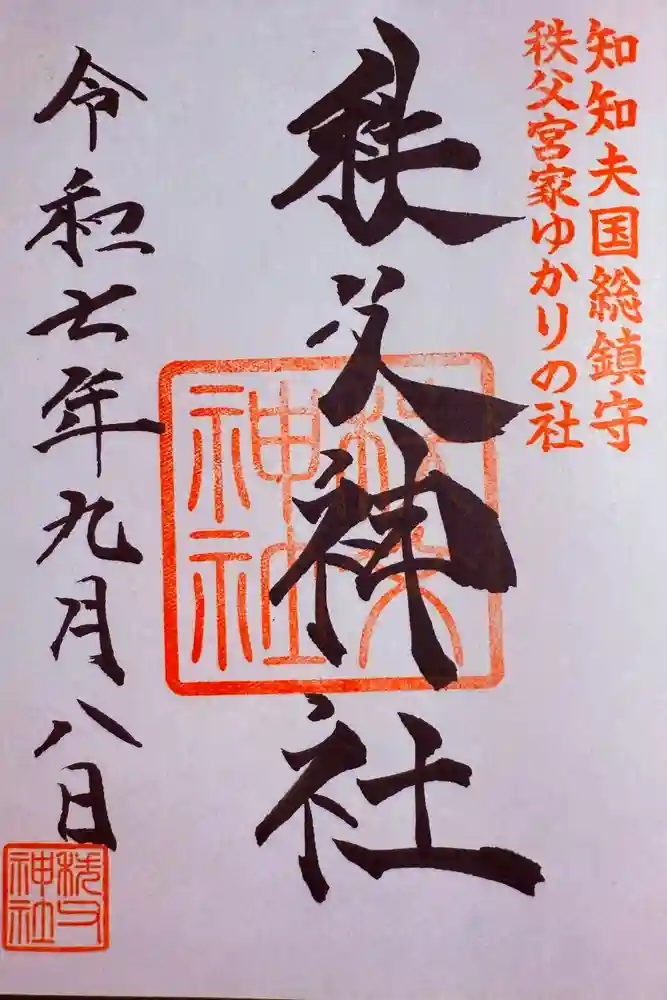 知知夫国総鎮守
秩父宮家ゆかりの社
秩父神社
秩父神社
令和七年九月八日
秩父神社